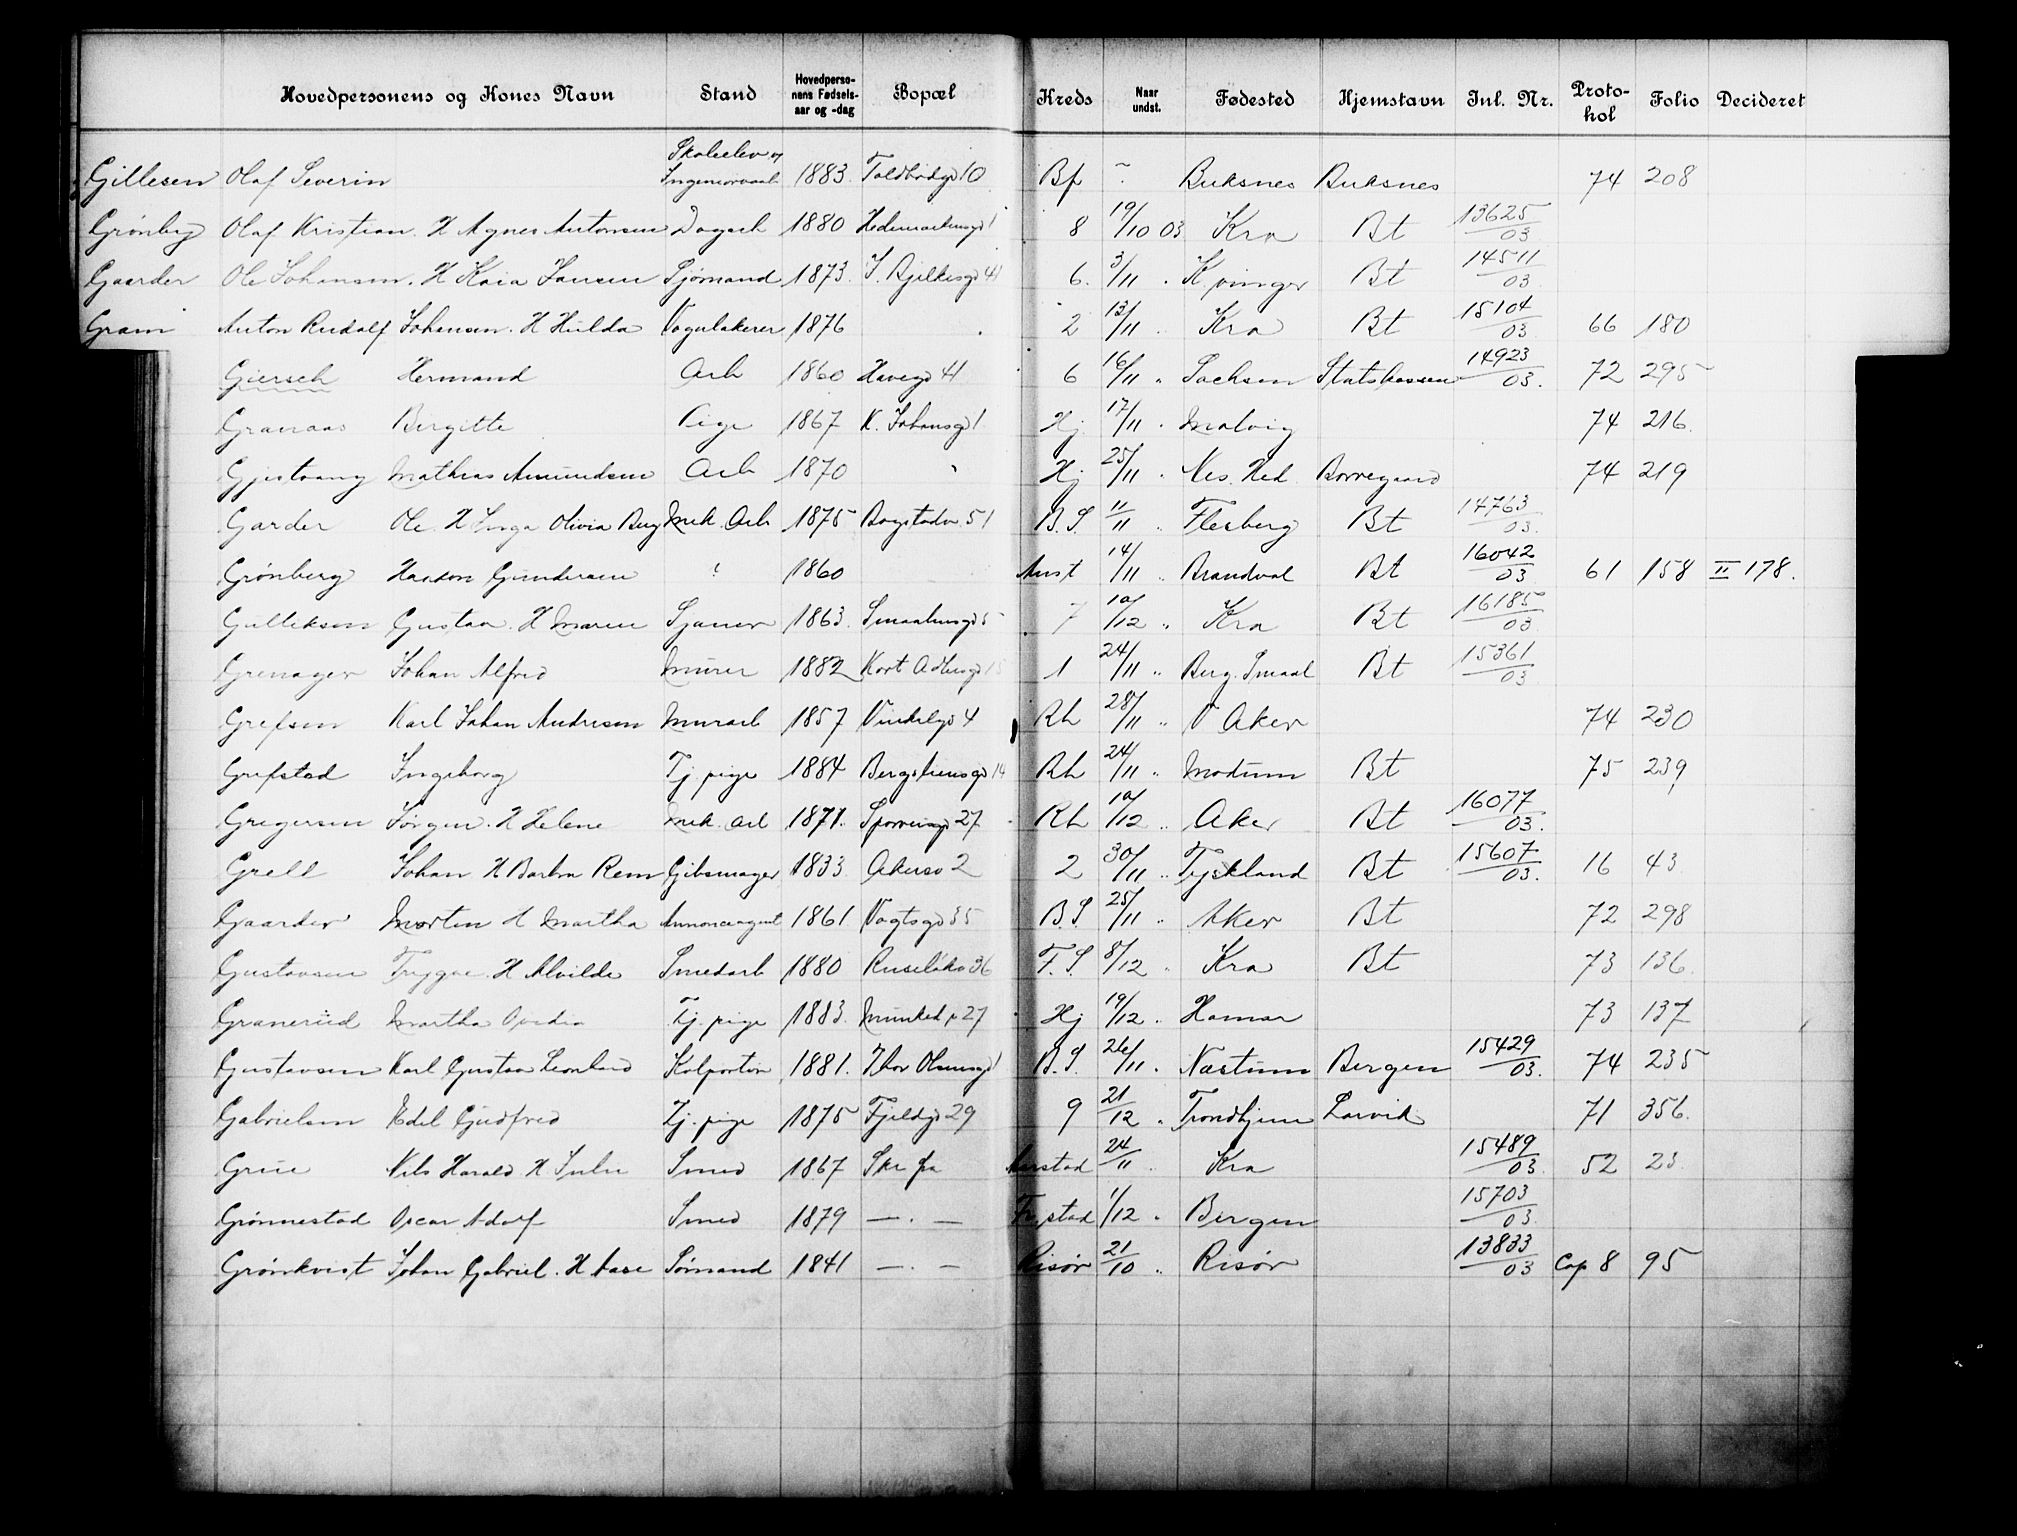 Hovedpersonens og Kones Navn Stand Hovedpersonens Fødselsaar og -dag Bopæl Kreds Naar undst. Fødested Hjemstavn Jnl. Nr. Protokol Folio Decideret
Gillesen Olaf Severin Skoleelev 1883. Toldbodgd 10 Bf Buksnes Buksnes 74 208
Grønberg Olaf Kristian. H Agnes Antonsen Dagarb 1880 Hedemarkensgd 1 8 19/10 03 Kra Bt 13625/03
Gaarder Ole Johansen. H Kaia Jansen Sjømand 1873. J. Bjelkesgd 41 6. 3/11 " K.vinger Bt 14511/03
Gram Anton Rudolf Johansen. H Hulda Vognlakerer 1876 2 13/11 " Kra Bt 15104/03 66 180
Giersch Hermand Arb 1860 Havegd 41 6 16/11 " Sachsen Statskassen 14923/03. 72 295
Granaas Birgitte Pige 1867 K. Johansgd 1 Hj 17/11 " Malvig 74 216.
Mathias Amundsen Arb 1870 " Hj 25/11 " Nes. Hed. Borregaard 74 219
Garder Ole. H Inga Olivia Berg Mek. Arb 1875 Bogstadv 51 B.S. 11/11 " Flesberg Bt 14763/03
Grønberg Haakon Gundersen ? 1860 Anst 14/11 " Brandval Bt 16042/03 61 158 II 178.
Gulliksen Gustav. H Maren 1863. Smaalensgd 5 7 10/12 " Kra Bt 16185/03
Grenager Johan Alfred Murer 1882 Kort Adlersgd 15 1 24/11 " Berg. Smaal Bt 15361/03
Grefsen Karl Johan Andresen Murarb 1857 4 Rh 28/11 " V Aker 74 230
Grefstad Ingeborg Tj. pige 1884 Bergsliensgd 14 Rh 24/11 " Modum Bt 75 239
Gregersen Jørgen. H Helene Mek. Arb 1871. Sporveisgd 27 Rh 10/12 " Aker Bt 16077/03.
Grell Johan H Barbra Rem Gibsmager 1833 Akersv 2 2 30/11 " Tyskland Bt 15607/03. 16 43.
Gaarder Morten H Martha Annonceagent 1861 Vogtsgd 35 B.S 25/11 " Aker Bt 72 298
Gustavsen Trygve. H Alvilde Smedarb 1880 Ruseløkv 36 F.S. 8/12 " Kra Bt 73 136.
Granerud Martha Ovedia Tj. pige 1883. Munked.v 27 Hj 19/12 " Hamar 73 137
Gustavsen Karl Gustav Leonhard Kolportør 1881. Thor Olsensgd 1 B.S. 26/11 " Næstum Bergen 15429/03. 74 235
Gabrielsen Edel Gudfred Tj. pige 1875 Fjeldgd 29 9 21/12 " Trondhjem Larvik 71 356.
Grue Nils Harald H. Julie Smed 1867 Skr fra Aarstad 24/11 " Kra 15489/03. 52 23.
Grønnestad Oscar Adolf Smed 1879 —. — Fr.stad 1/12 " Bergen 15703/03.
Grønkvist Johan Gabriel. H Aase Sømand 1841 —. — Risør 21/10 " Risør 13833/03 Cop 8 95